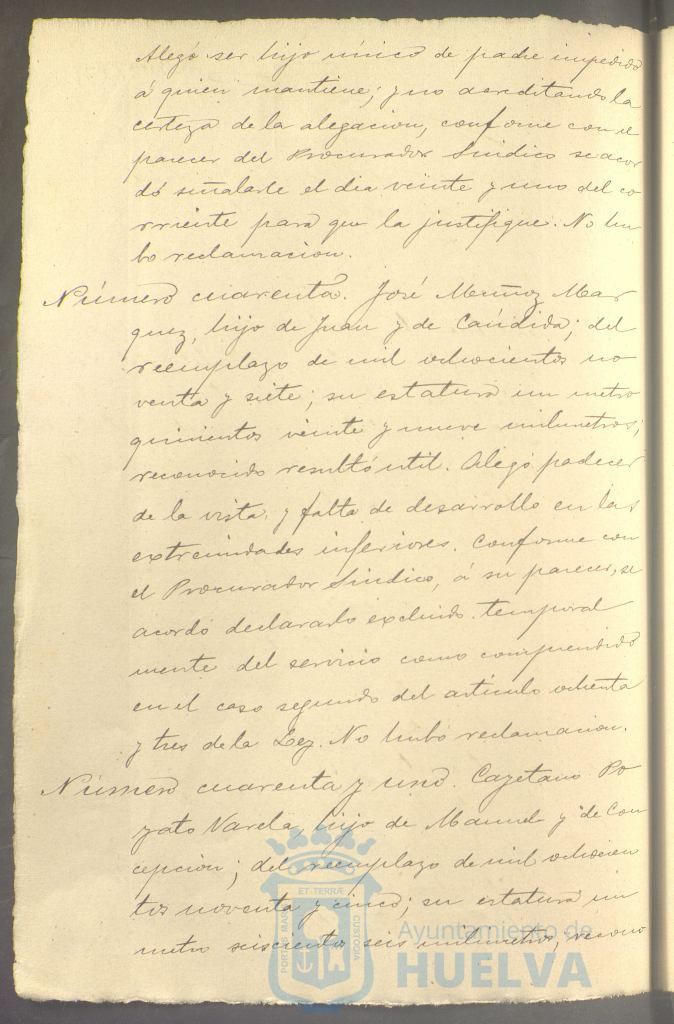 Alegó ser hijo único de padre impedido
á quien mantiene; y no acreditando la
certeza de la alegacion, conforme con el
parecer del Procurador Sindico se acor
dó señalarle el dia veinte y uno del co
rriente para que la justifique. No hu
bo reclamacion.
Número cuarenta. José Muñoz Mar
quez, hijo de Juan y de Cándida; del
reemplazo de mil ochocientos no
venta y siete; su estatura un metro
quinientos veinte y nueve milimetros;
reconocido resultó util. Alegó padecer
de la vista y falta de desarrollo en las
extremidades inferiores. Conforme con
el Procurador Sindico, á su parecer, se
acordó declararlo excluido temporal
mente del servicio como comprendido
en el caso segundo del artículo ochenta
y tres de la Ley. No hubo reclamacion.
Número cuarenta y uno. Cayetano Po
yato Varela, hijo de Manuel y de Con
cepcion; del reemplazo de mil ochocien
tos noventa y cinco; su estatura un
metro seiscientos seis milimetros; recono
PORTUS MARIS ET TERRÆ CUSTODIA
Ayuntamiento de
HUELVA